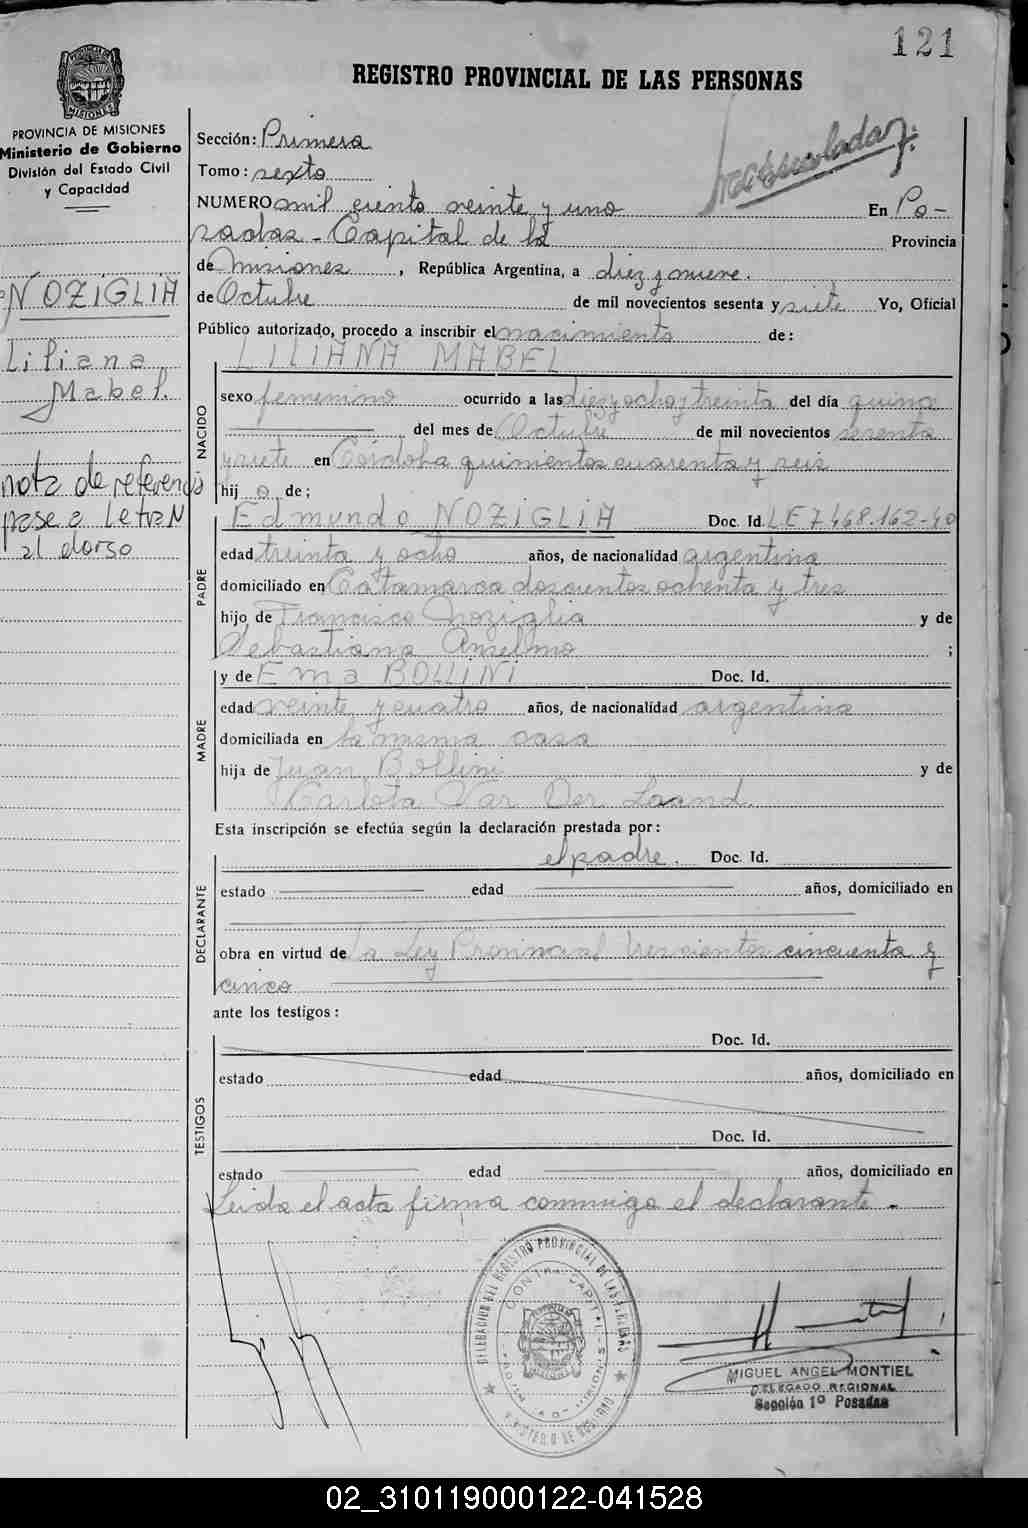 121
REGISTRO PROVINCIAL DE LAS PERSONAS
PROVINCIA DE MISIONES
Ministerio de Gobierno
División del Estado Civil
y Capacidad
NOZIGLIA
Liliana
Mabel.
nota de referencia
pase a letra N
al dorso
Sección: Primera
Tomo: sexto
NUMERO mil ciento veinte y uno En Po-
sadas - Capital de la Provincia
de Misiones, República Argentina, a diez y nueve.
de Octubre de mil novecientos sesenta y siete Yo, Oficial
Público autorizado, procedo a inscribir el nacimiento de:
NACIDO
LILIANA MABEL
sexo femenino ocurrido a las diez y ocho y treinta del día quince
del mes de Octubre de mil novecientos sesenta
y siete en Córdoba quinientos cuarenta y seis
hij a de;
PADRE
Edmundo NOZIGLIA Doc. Id. LE 7468.162-40
edad treinta y ocho años, de nacionalidad argentina
domiciliado en Catamarca doscientos ochenta y tres
hijo de Francisco Noziglia y de
Sebastiana Anselmo ;
MADRE
y de Ema BOLLINI Doc. Id.
edad veinte y cuatro años, de nacionalidad argentina
domiciliada en la misma casa
hija de Juan Bollini y de
Carlota Var Der Laand.
Esta inscripción se efectúa según la declaración prestada por:
DECLARANTE
el padre. Doc. Id.
estado edad años, domiciliado en
obra en virtud de la Ley Provincial trescientos cincuenta y
cinco
ante los testigos:
TESTIGOS
Doc. Id.
estado edad años, domiciliado en
Doc. Id.
estado edad años, domiciliado en
Leida el acta firma conmigo el declarante -
DELEGACION DEL REGISTRO PROVINCIAL DE LAS PERSONAS
MIGUEL ANGEL MONTIEL
DELEGADO REGIONAL
Sección 1º Posadas
02_310119000122-041528